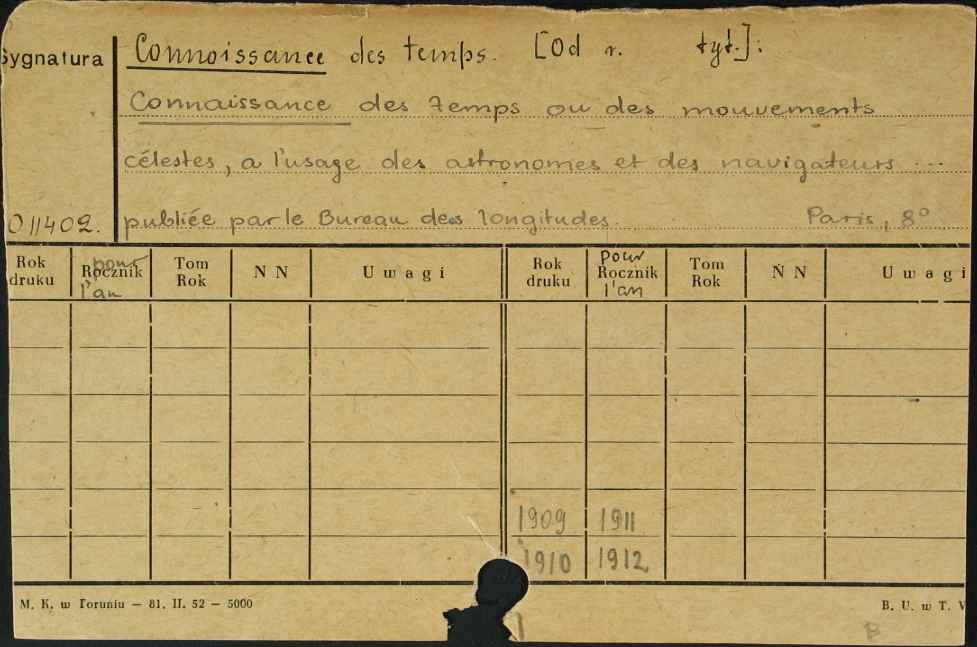 Sygnatura Connoissance des temps. [Od r. tyt.]:
Connaissance des temps ou des mouvements
célestes, a l'usage des astronomes et des navigateurs ...
011402. publiée par le Bureau des longitudes. Paris, 8°
Rok druku pour Rocznik l'an Tom Rok N N Uwagi Rok druku pour Rocznik l'an Tom Rok N N Uwagi
1909 1911
1910 1912
M. K. w Toruniu — 81. II. 52 — 5000 B. U. w T. V
B